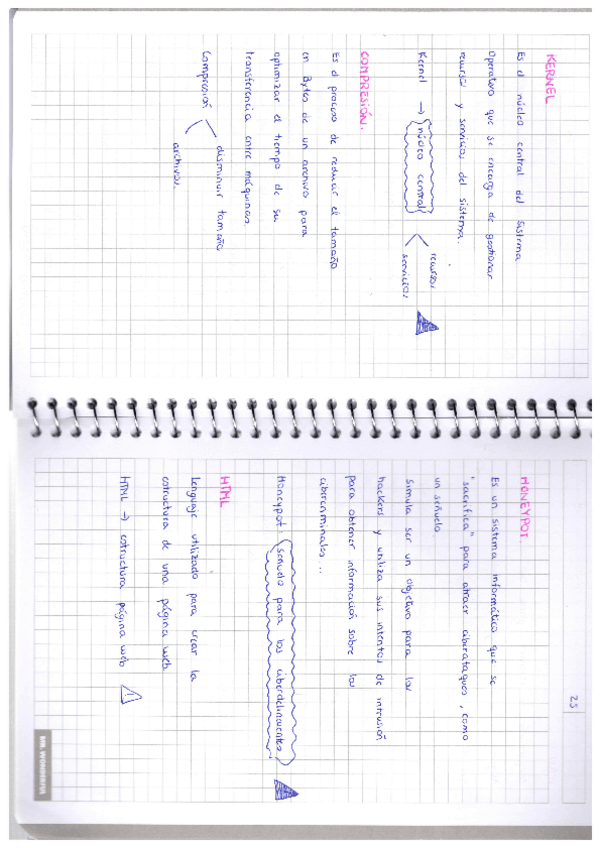 KERNEL
Es el núcleo central del sistema
Operativo que se encarga de gestionar
recursos y servicios del sistema.
Kernel → núcleo central
recursos
servicios
COMPRESIÓN.
Es el proceso de reducir el tamaño
en Bytes de un archivo para
optimizar el tiempo de su
transferencia entre máquinas
Compresión
disminuir tamaño
archivos.
25
HONEYPOT.
Es un sistema informático que se
"sacrifica" para atraer ciberataques, como
un señuelo.
Simula ser un objetivo para los
hackers y utiliza sus intentos de intrusión
para obtener información sobre los
cibercriminales...
Honeypot: señuelo para los ciberdelincuentes
HTML
Lenguaje utilizado para crear la
estructura de una página web
HTML → estructura página web !
MR. WONDERFUL